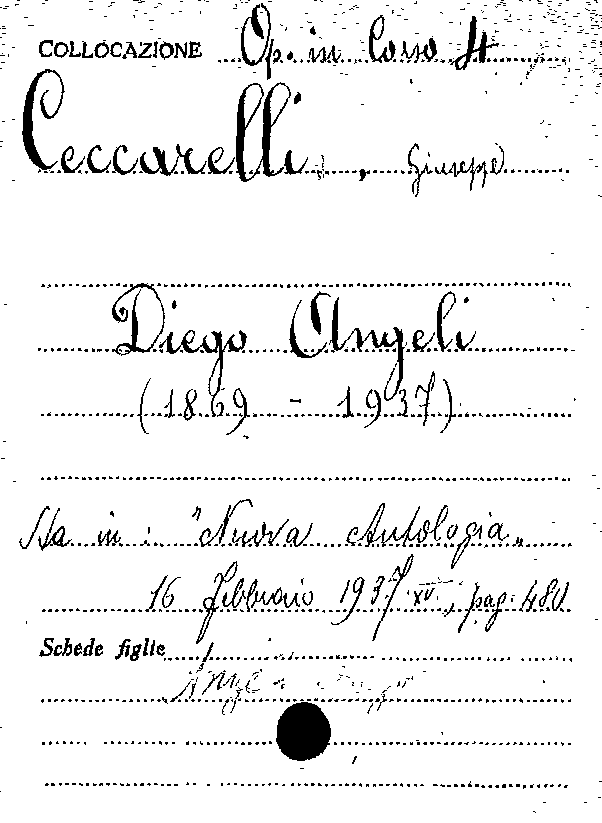 COLLOCAZIONE Op. in Corso 4
Ceccarelli, Giuseppe
Diego Angeli
(1869 - 1937)
Sta in: "Nuova Antologia„
16 febbraio 1937. XV., pag. 480
Schede figlie